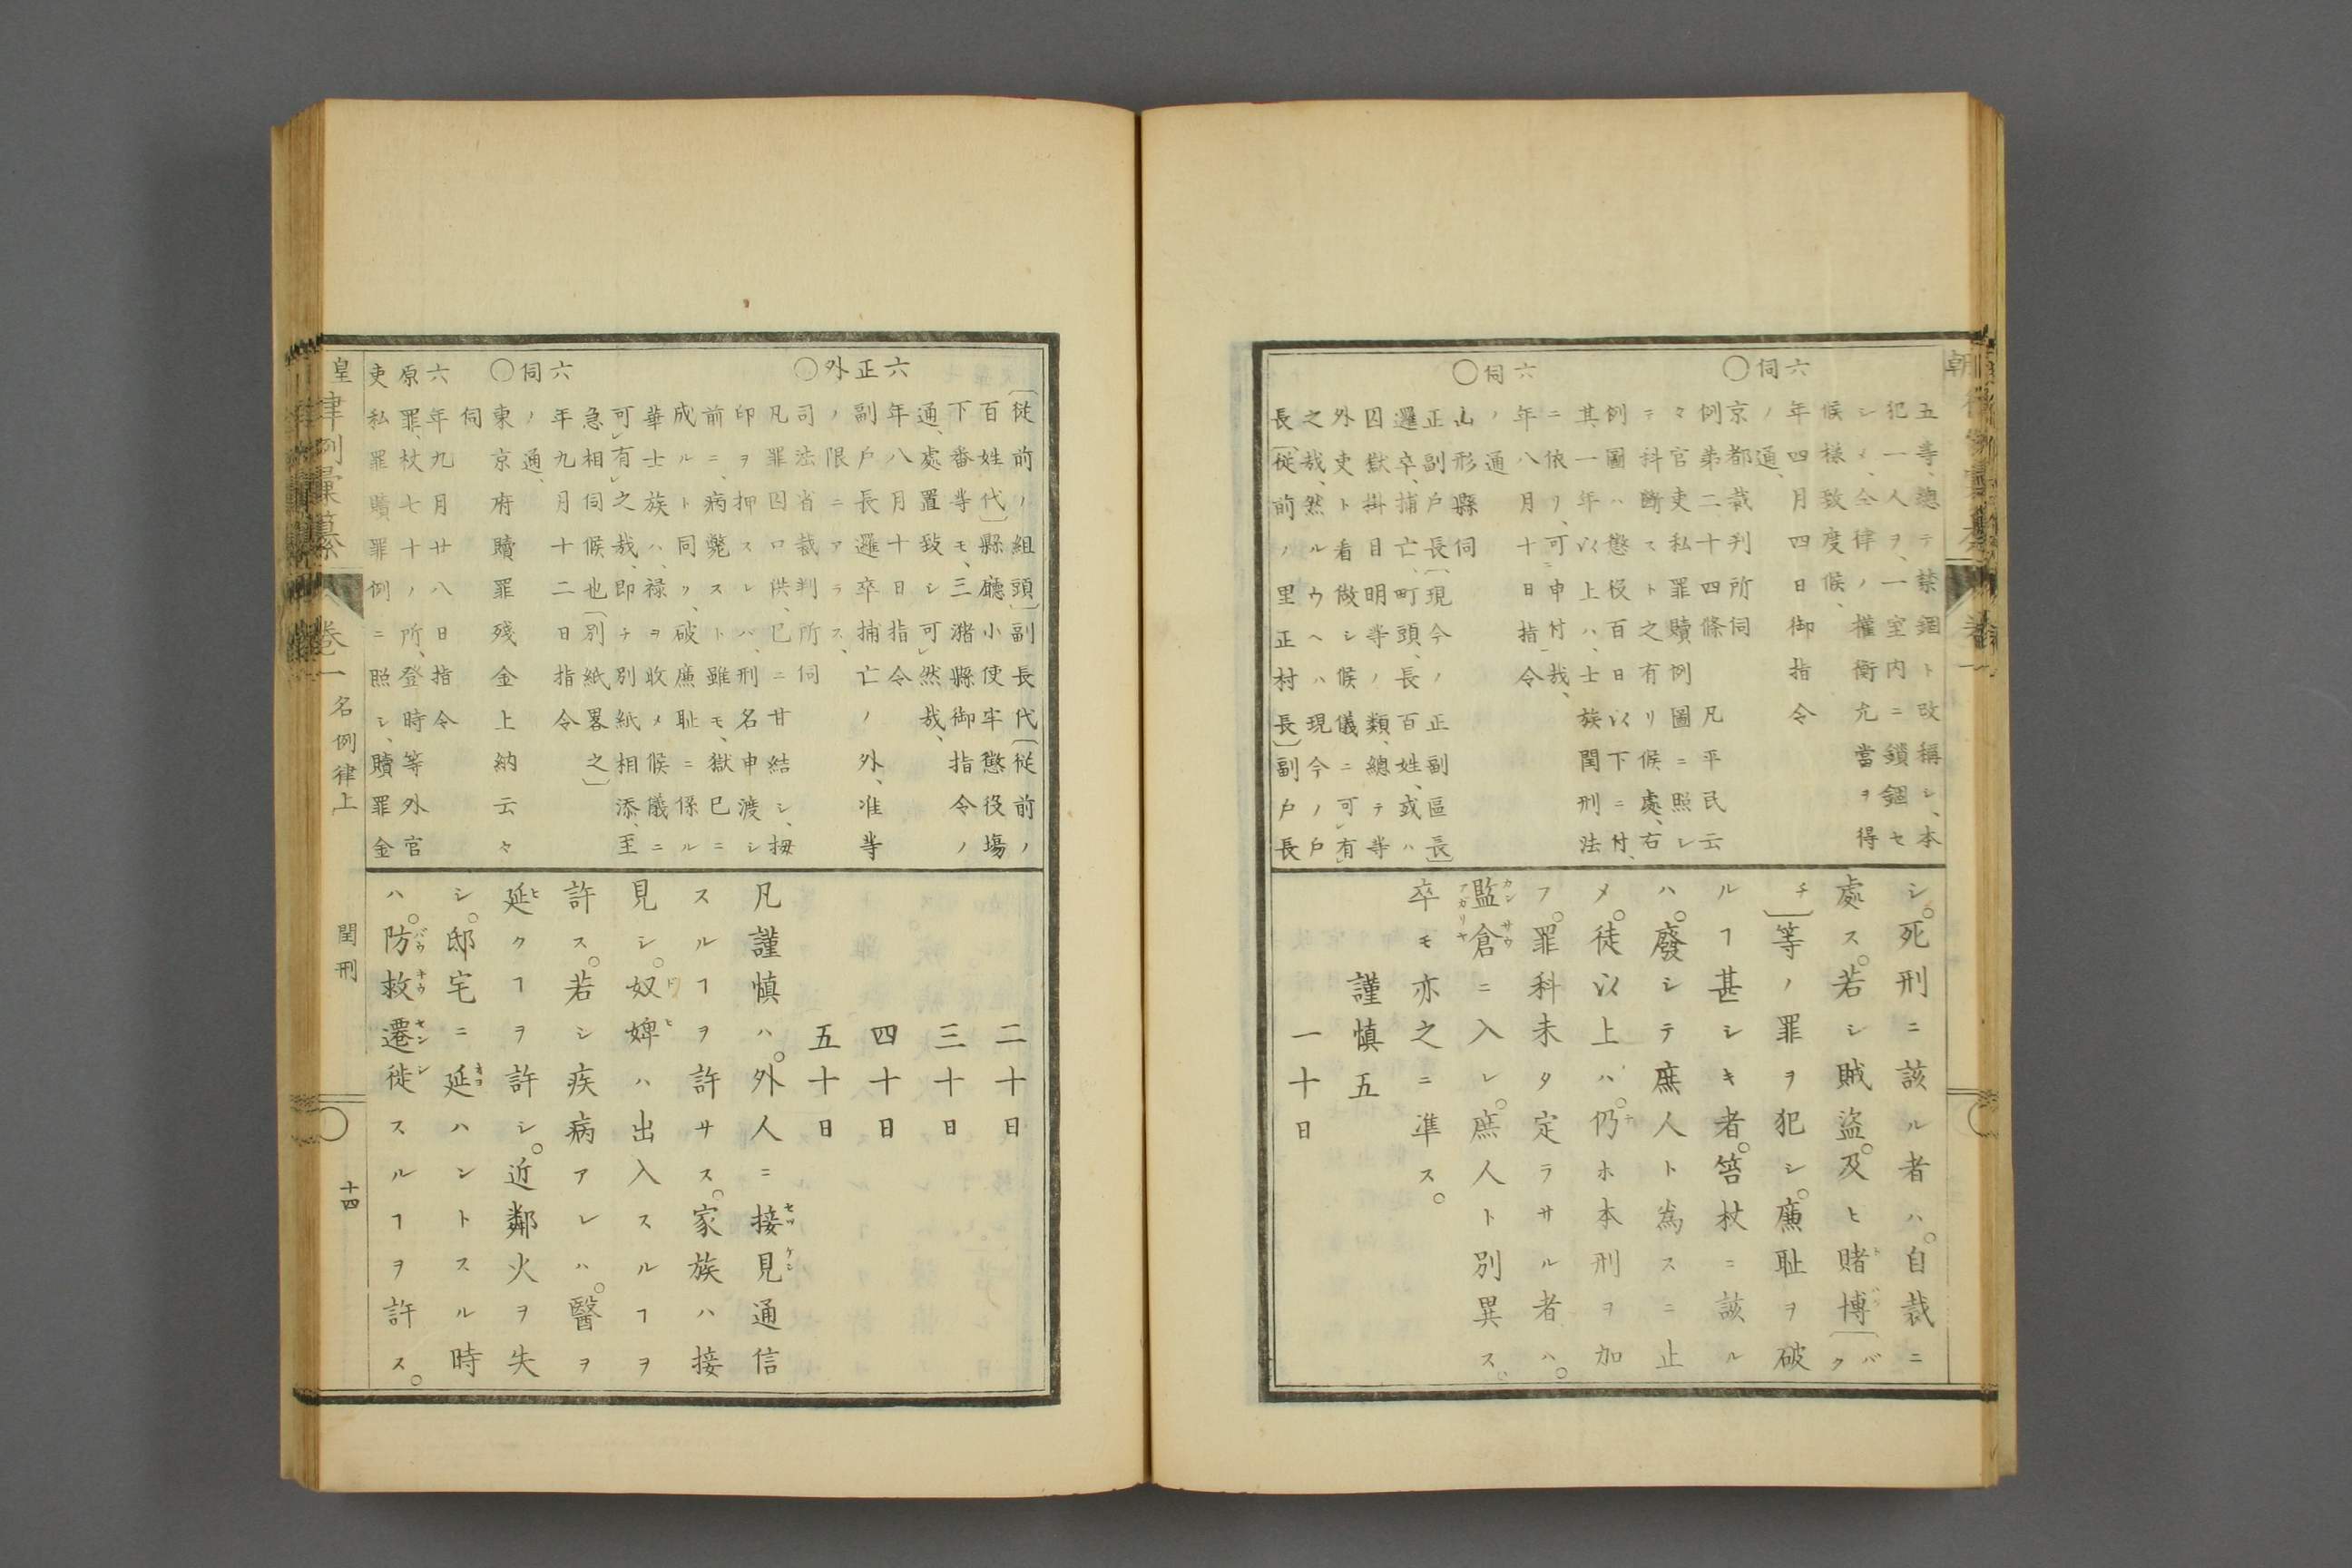 五等、總テ禁錮ト改稱シ、本
犯一人ヲ、一室内ニ鎖錮セ
シメ、仝律ノ權衡允當ヲ得
候様致度候、
年四月四日御指令
ノ通、
六伺
〇京都裁判所伺
例第二十四條 凡平民云
々官吏私罪贖例圖ニ照レ
テ科斷スト之有リ候處、右
例圖ハ懲役百日以下ニ付、
其一年以上ハ、士族閏刑法
ニ依リ、可申付哉、
年八月十日指令
ノ通
六伺
〇山形縣伺
正副戸長〔現今ノ正副區長〕
邏卒、捕亡、町頭、長百姓、或ハ
囚獄掛目明等ノ類、總テ等
外吏ト看做シ候儀ニ可有
之哉、然ルウヘハ現今ノ戸
長〔従前ノ里正村長〕副戸長
シ。死刑ニ該ル者ハ。自裁ニ
處ス。若シ賊盗。及ヒ賭博〔バク
チ〕等ノ罪ヲ犯シ。廉耻ヲ破
ルヿ甚シキ者。笞杖ニ該ル
ハ。廢シテ庶人ト為スニ止
メ。徒以上ハ。仍ホ本刑ヲ加
フ。罪科未タ定ラサル者ハ。
監倉ニ入レ。庶人ト別異ス。
卒モ亦之ニ準ス。
謹慎五
一十日
〔従前ノ組頭〕副長代〔従前ノ
百姓代〕縣廳小使牢懲役場
下番等モ、三潴縣御指令ノ
通、處置致シ可然哉、
年八月十日指令
副戸長邏卒捕亡ノ外、准等
ノ限ニアラス、
六正外
〇司法省裁判所伺
凡罪囚口供、已ニ甘結シ、拇
印ヲ押スレハ、刑名申渡シ
前ニ、病斃スト雖モ、獄已ニ
成ルト同ク、破廉耻ニ係ル
華士族ハ、禄ヲ收メ候儀ニ
可有之哉、即チ別紙相添、至
急相伺候也〔別紙畧之〕
年九月十二日指令
ノ通、
六伺
〇東京府贖罪殘金上納云々
伺
年九月廿八日指令
六原吏
罪、杖七十ノ所、登時等外官
私罪贖罪例ニ照シ、贖罪金
二十日
三十日
四十日
五十日
凡謹慎ハ。外人ニ接見通信
スルヿヲ許サス。家族ハ接
見シ。奴婢ハ出入スルヿヲ
許ス。若シ疾病アレハ。醫ヲ
延クヿヲ許シ。近鄰火ヲ失
シ。邸宅ニ延ハントスル時
ハ。防救遷徙スルヿヲ許ス。
皇律例彙纂 卷一 名例律上 閏刑 十四